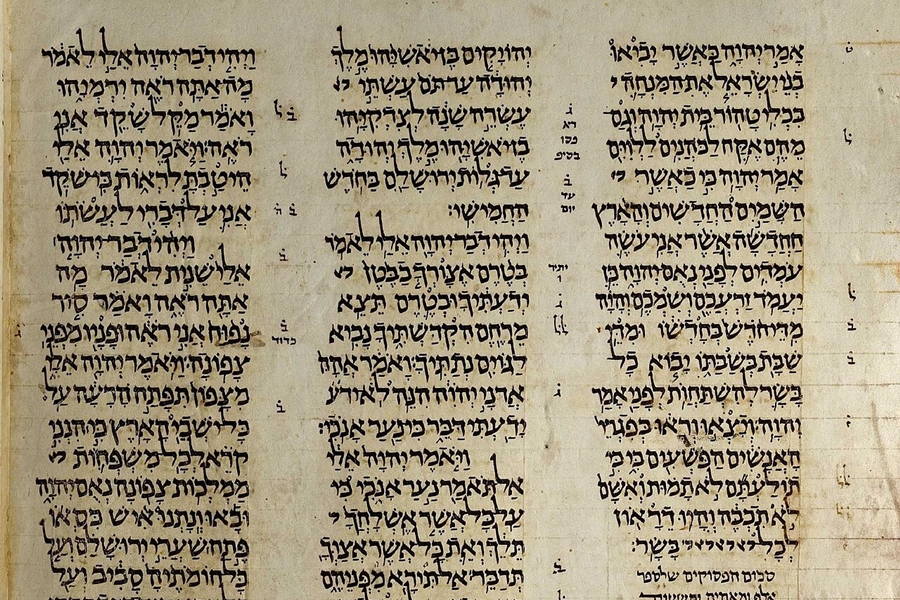 אמר יהוה כאשר יביאו
בני ישראל את המנחה
בכלי טהור בית יהוה וגם
מהם אקח לכהנים ללוים
אמר יהוה כי כאשר
השמים החדשים והארץ
החדשה אשר אני עשה
עמדים לפני נאם יהוה כן
יעמד זרעכם ושמכם והיה
מדי חדש בחדשו ומדי
שבת בשבתו יבוא כל
בשר להשתחות לפני אמר
יהוה ויצאו וראו בפגרי
האנשים הפשעים בי כי
תולעתם לא תמות ואשם
לא תכבה והיו דראון
לכל בשר׃
סכום הפסוקים שלספר
אלף ומאתים
יהויקים בן יאשיהו מלך
יהודה עד תם עשתי
עשרה שנה לצדקיהו
בן יאשיהו מלך יהודה
עד גלות ירושלם בחדש
החמישי׃
ויהי דבר יהוה אלי לאמר
בטרם אצורך בבטן
ידעתיך ובטרם תצא
מרחם הקדשתיך נביא
לגוים נתתיך ואמר אהה
אדני יהוה הנה לא
ידעתי דבר כי נער אנכי׃
ויאמר יהוה אלי
אל תאמר נער אנכי כי
על כל אשר אשלחך
תלך ואת כל אשר אצוך
תדבר אל תירא מפניהם
ויהי דבר יהוה אלי לאמר
מה אתה ראה ירמיהו
ואמר מקל שקד אני
ראה ויאמר יהוה אלי
היטבת לראות כי שקד
אני על דברי לעשתו
ויהי דבר יהוה
אלי שנית לאמר מה
אתה ראה ואמר סיר
נפוח אני ראה ופניו מפני
צפונה ויאמר יהוה אלי
מצפון תפתח הרעה על
כל ישבי הארץ כי הנני
קרא לכל משפחות
ממלכות צפונה נאם יהוה
ובאו ונתנו איש כסאו
פתח שערי ירושלם ועל
כל חומתיה סביב ועל